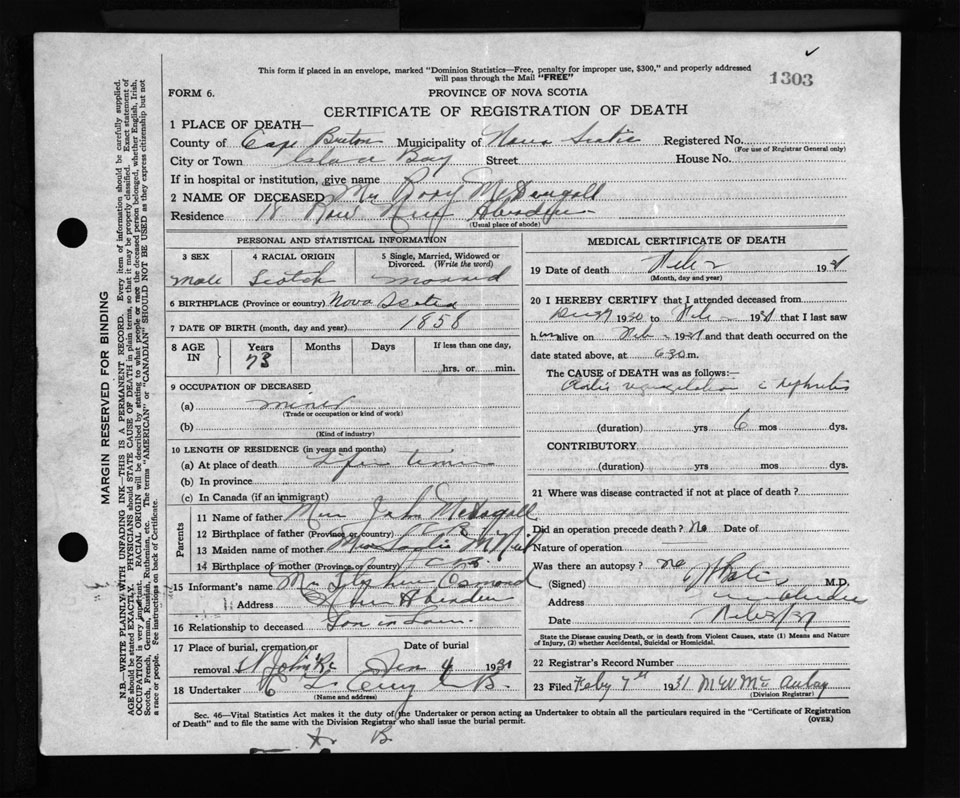 This form if placed in an envelope, marked "Dominion Statistics—Free, penalty for improper use, $300," and properly addressed
will pass through the Mail "FREE"
1303
FORM 6.
PROVINCE OF NOVA SCOTIA
CERTIFICATE OF REGISTRATION OF DEATH
1 PLACE OF DEATH—
County of Cape Breton Municipality of Nova Scotia Registered No.
(For use of Registrar General only)
City or Town Glace Bay Street House No.
If in hospital or institution, give name
2 NAME OF DECEASED Mr Rory McDougall
Residence 18 Row New Aberdeen
(Usual place of abode)
PERSONAL AND STATISTICAL INFORMATION
3 SEX 4 RACIAL ORIGIN 5 Single, Married, Widowed or
Divorced. (Write the word)
Male Scotch married
6 BIRTHPLACE (Province or country) Nova Scotia
7 DATE OF BIRTH (month, day and year) 1858
8 AGE IN Years Months Days If less than one day,
73 hrs. or min.
9 OCCUPATION OF DECEASED
(a) miner
(Trade or occupation or kind of work)
(b)
(Kind of industry)
10 LENGTH OF RESIDENCE (in years and months)
(a) At place of death Life time
(b) In province
(c) In Canada (if an immigrant)
Parents
11 Name of father John
12 Birthplace of father (Province or country) C B
13 Maiden name of mother
14 Birthplace of mother (Province or country) C B
15 Informant's name Mr Stephen Osmond
Address New Aberdeen
16 Relationship to deceased Son in Law
17 Place of burial, cremation or Date of burial
removal St John 4 1931
18 Undertaker
(Name and address)
MEDICAL CERTIFICATE OF DEATH
19 Date of death Feb 2 1931
(Month, day and year)
20 I HEREBY CERTIFY that I attended deceased from
1930 to Feb 1931 that I last saw
h im alive on Feb 1931 and that death occurred on the
date stated above, at 6 30 m.
The CAUSE of DEATH was as follows:—
Aortic regurgitation c nephritis
(duration) yrs 6 mos dys.
CONTRIBUTORY
(duration) yrs mos dys.
21 Where was disease contracted if not at place of death?
Did an operation precede death? No Date of
Nature of operation
Was there an autopsy? no
(Signed) M.D.
Address
Date Feb 3/31
State the Disease causing Death, or in death from Violent Causes, state (1) Means and Nature
of Injury, (2) whether Accidental, Suicidal or Homicidal.
22 Registrar's Record Number
23 Filed Feby 7th 1931
(Division Registrar)
Sec. 46—Vital Statistics Act makes it the duty of the Undertaker or person acting as Undertaker to obtain all the particulars required in the "Certificate of Registration
of Death" and to file the same with the Division Registrar who shall issue the burial permit.
(OVER)
B
MARGIN RESERVED FOR BINDING
N.B.—WRITE PLAINLY, WITH UNFADING INK—THIS IS A PERMANENT RECORD. Every item of information should be carefully supplied.
AGE should be stated EXACTLY. PHYSICIANS should STATE CAUSE OF DEATH in plain terms, so that it may be properly classified. Exact statement of
OCCUPATION is very important. RACIAL ORIGIN will be described by stating to what people or race the deceased person belonged, whether English, Irish,
Scotch, French, German, Russian, Ruthenian, etc. The terms "AMERICAN" or "CANADIAN" SHOULD NOT BE USED as they express citizenship but not
a race or people. See instructions on back of Certificate.